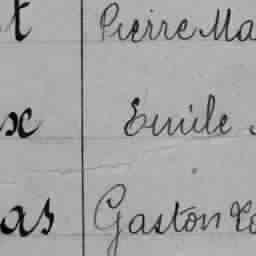 t Pierre Ma
x Emile
as Gaston Lo